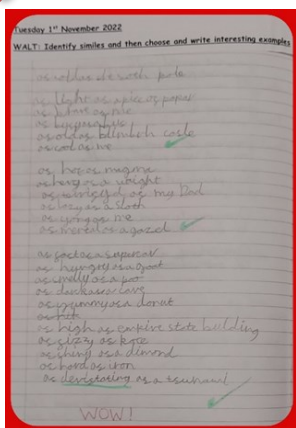 Tuesday 1st November 2022
WALT: Identify similes and then choose and write interesting examples
as cold as de north pole
as light as a pice of paper
as
as
as old as casle
as cool as ive
as hot as magma
as hevy as a weight
as as my Dad
as lazy as a sloth
as young as me
as as a gazel
as fast as a supercar
as hungry as a goat
as smelly as a poo
as dark as a cave
as yummy as a donut
as
as high as empire state building
as fizzy as
as shiny as a dimond
as hard as iron
as devistating as a tsunami
WOW!